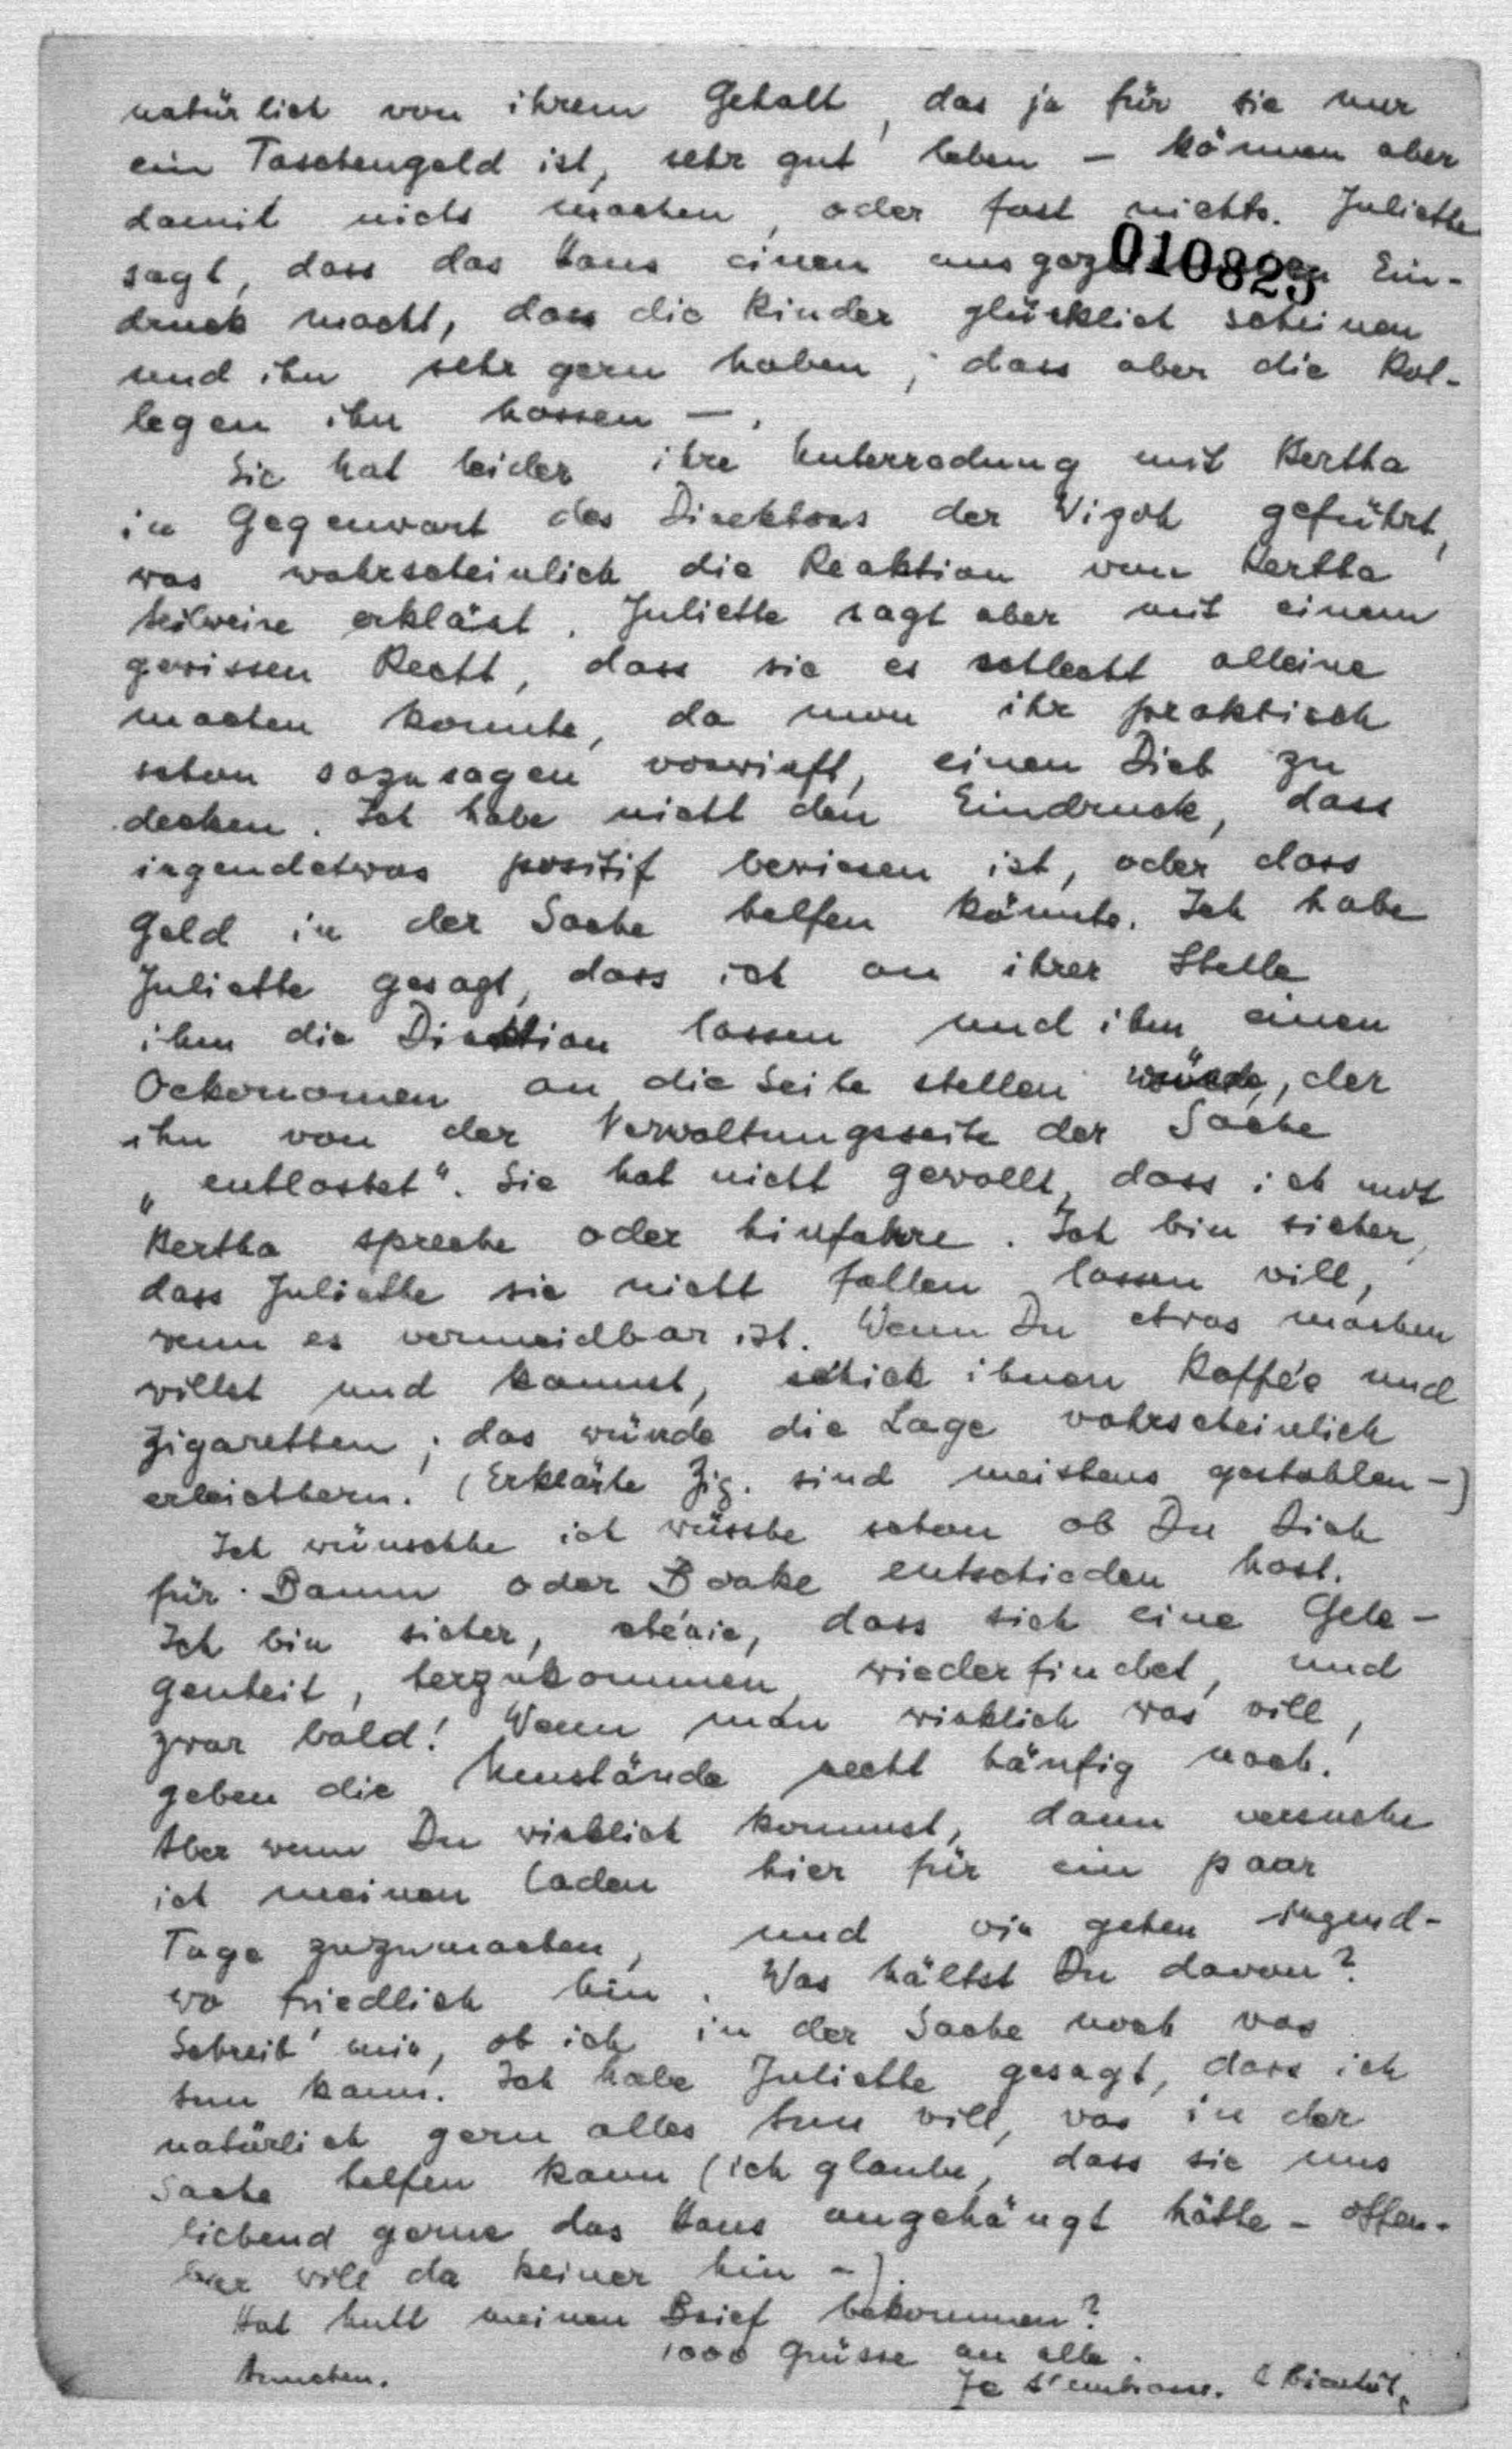 natürlich von ihrem Gehalt, das ja für sie nur
ein Taschengeld ist, sehr gut leben – können aber
damit nichts machen, oder fast nichts. Juliette
010823
sagt, dass das Haus einen ausgezeichneten Ein-
druck macht, dass die Kinder glücklich scheinen
und ihn sehr gern haben; dass aber die Kol-
legen ihn hassen –.
Sie hat leider ihre Unterredung mit Bertha
in Gegenwart des Direktors der Vigoh geführt,
was wahrscheinlich die Reaktion von Bertha
teilweise erklärt. Juliette sagt aber mit einem
gewissen Recht, dass sie es schlecht alleine
machen konnte, da man ihr praktisch
schon sozusagen vorwirft, einen Dieb zu
decken. Ich habe nicht den Eindruck, dass
irgendetwas positif bewiesen ist, oder dass
Geld in der Sache helfen könnte. Ich habe
Juliette gesagt, dass ich an ihrer Stelle
ihm die Direktion lassen und ihm einen
Oekonomen an die Seite stellen würde, der
ihn von der Verwaltungsseite der Sache
„entlastet“. Sie hat nicht gewollt, dass ich mit
Bertha spreche oder hinfahre. Ich bin sicher,
dass Juliette sie nicht fallen lassen will,
wenn es vermeidbar ist. Wenn Du etwas machen
willst und kannst, schick ihnen Kaffée und
Zigaretten; das würde die Lage wahrscheinlich
erleichtern. (Erklärte Zig. sind meistens gestohlen –)
Ich wünschte ich wüsste schon ob Du Dich
für Baum oder Boake entschieden hast.
Ich bin sicher, chérie, dass sich eine Gele-
genheit, herzukommen, wiederfindet, und
zwar bald! Wenn man wirklich was will,
geben die Umstände recht häufig nach.
Aber wenn Du wirklich kommst, dann versuche
ich meinen Laden hier für ein paar
Tage zuzumachen, und wir gehen irgend-
wo friedlich hin. Was hältst Du davon?
Schreib' mir, ob ich in der Sache noch was
tun kann. Ich habe Juliette gesagt, dass ich
natürlich gern alles tun will, was in der
Sache helfen kann (ich glaube, dass sie uns
liebend gerne das Haus angehängt hätte – offen-
bar will da keiner hin –).
Hat meinen Brief bekommen?
1000 Grüsse an alle.
Annchen. Je t'embrasse. A bientôt,